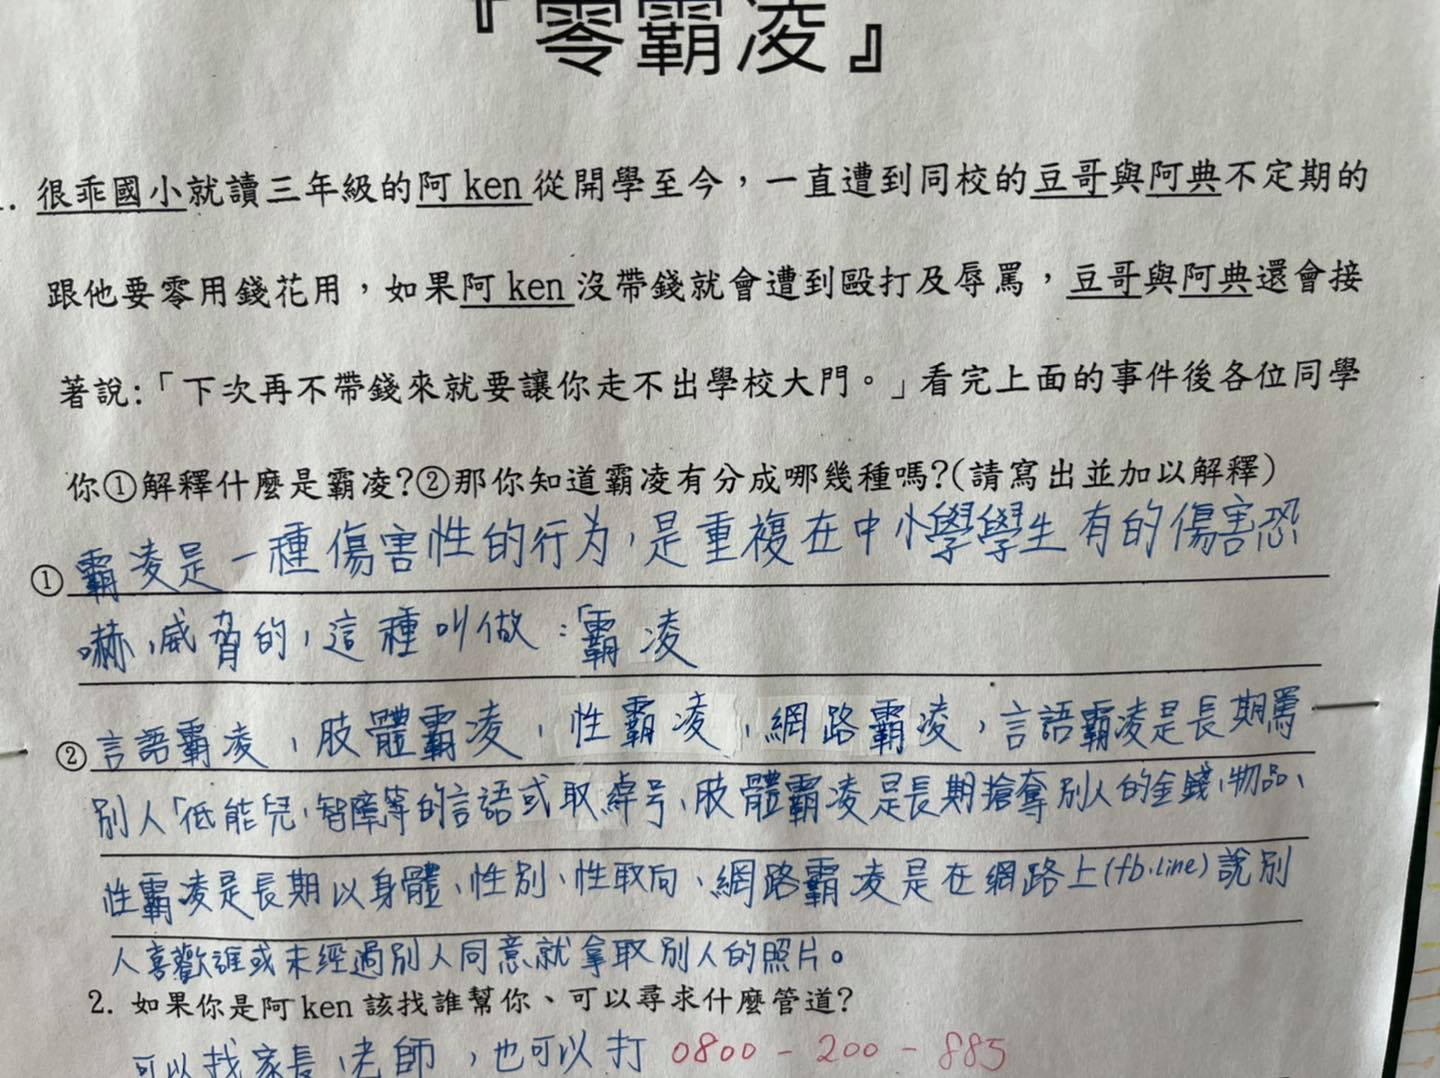 『零霸凌』
1. 很乖國小就讀三年級的阿 ken 從開學至今，一直遭到同校的豆哥與阿典不定期的
跟他要零用錢花用，如果阿 ken 沒帶錢就會遭到毆打及辱罵，豆哥與阿典還會接
著說:「下次再不帶錢來就要讓你走不出學校大門。」看完上面的事件後各位同學
你①解釋什麼是霸凌?②那你知道霸凌有分成哪幾種嗎?(請寫出並加以解釋)
①霸凌是一種傷害性的行为，是重複在中小學學生有的傷害恐
嚇，威脅的，這種叫做：「霸凌
②言語霸凌、肢體霸凌、性霸凌、網路霸凌，言語霸凌是長期罵
別人「低能兒、智障等的言語或取綽号、肢體霸凌是長期搶奪別人的金錢、物品、
性霸凌是長期以身體、性別、性取向、網路霸凌是在網路上(fb.line)說別
人喜歡誰或未經過別人同意就拿取別人的照片。
2. 如果你是阿 ken 該找誰幫你、可以尋求什麼管道?
可以找家長、老師，也可以打 0800-200-885